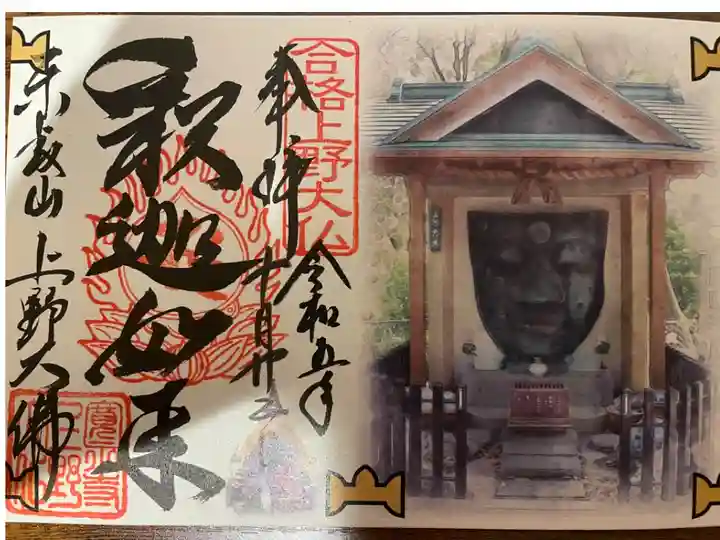 合格上野大仏
奉拝
令和五年
十月廿五
釈迦如来
東叡山上野大佛